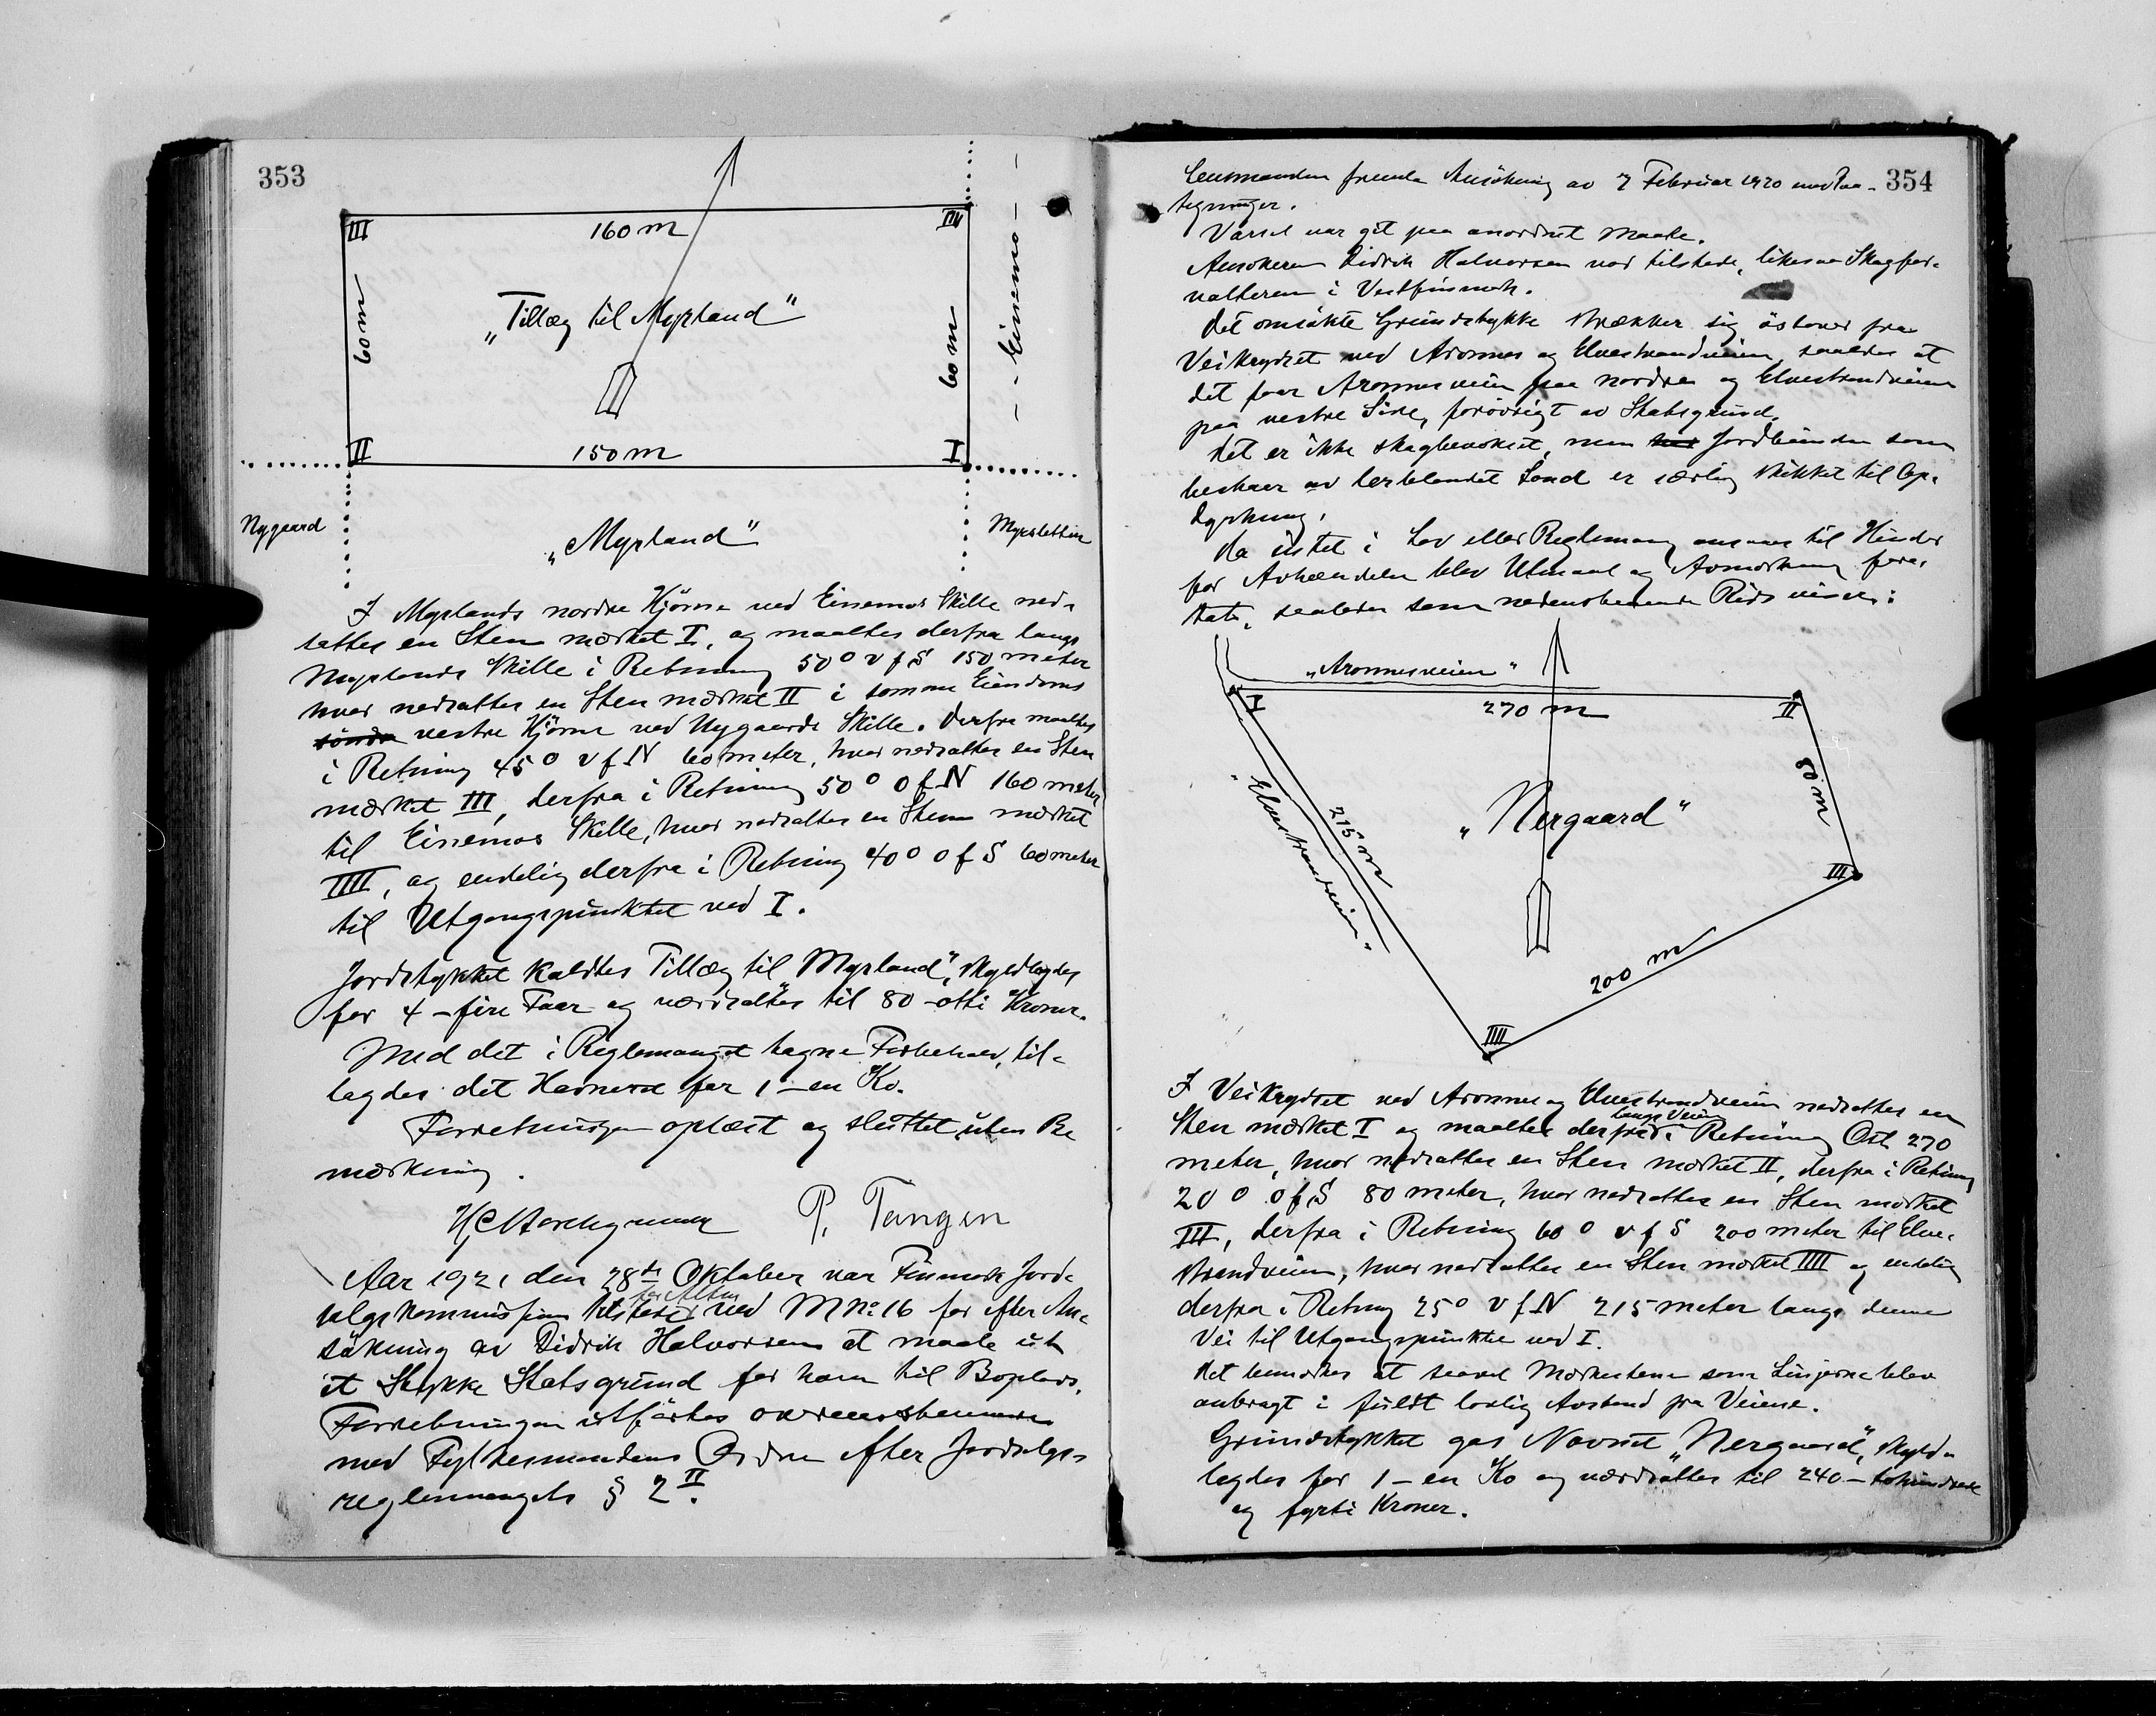 353
III
160 m
IIII
60 m
„Tillæg til Myrland“
60 m
- - Einemo - -
II
150 m
I
Nygaard
„Myrland“
Myrsletten
I Myrlands nordre Hjörne ved Einemos Skille ned-
sattes en Sten mærket I, og maaltes derfra langs
Myrlands Skille i Retning 50° v f S 150 meter
hvor nedsattes en Sten mærket II i samme Eiendoms
söndre vestre Hjörne ved Nygaards Skille. Derfra maaltes
i Retning 45° v f N 60 meter, hvor nedsattes en Sten
mærket III, derfra i Retning 50° o f N 160 meter
til Einemos Skille, hvor nedsattes en Sten mærket
IIII, og endelig derfra i Retning 40° o f S 60 meter
til Utgangspunktet ved I.
Jordstykket kaldtes Tillæg til „Myrland“, skyldlagdes
for 4 - fire Faar og værdsattes til 80 - otti Kroner.
Med det i Reglemanget tagne Forbehold, til-
lagdes det Havneret for 1 - en Ko.
Forretningen oplæst og sluttet uten Be
mærkning.
P. Tangen
Aar 1921 den 28de Oktober var Finmark Jord-
for Alten
salgskommission tilstede ved M No: 16 for efter An-
sökning av Didrik Halvorsen at maale ut
et Stykke Statsgrund for ham til Boplads.
Forretningen utförtes overensstemmende
med Fylkesmandens Ordre efter Jordsalgs-
reglemangets § 2 II.
354
Lensmanden fremla Ansökning av 7 Februar 1920 med Paa-
tegninger.
Varsel var git paa anordnet Maate.
Ansökeren Didrik Halvorsen var tilstede, likesaa Skogfor-
valteren i Vestfinmark.
Det omsökte Grundstykke strækker sig östover fra
Veikrydset ved Aronnes og Elvestrandveien, saaledes at
det faar Aronnesveien paa nordre og Elvestrandveien
paa vestre Side, forövrigt av Statsgrund.
Det er ikke skogbevokset, men Jordbunden som
bestaar av lerblandet Sand er særlig skikket til Op-
dyrkning.
Da intet i Lov eller Reglemang ansaaes til Hinder
for Avhændelse blev Utmaal og Avmerkning fore-
tat, saaledes som nedenstaaende Rids viser:
„Aronnesveien“
I
270 m
II
80 m
„Elvestrandveien“
215 m
„Nergaard“
III
200 m
IIII
I Veikrydset ved Aronnes og Elvestrandveien nedsattes en
langs Veien
Sten mærket I og maaltes derfra i Retning Ost 270
meter, hvor nedsattes en Sten mærket II, derfra i Retning
20° o f S 80 meter, hvor nedsattes en Sten mærket
III, derfra i Retning 60° v f S 200 meter til Elve-
strandveien, hvor nedsattes en Sten mærket IIII og endelig
derfra i Retning 25° v f N 215 meter langs denne
Vei til Utgangspunktet ved I.
Det bemærkes at saavel Mærkestene som Linjerne blev
anbragt i fuldt lovlig Avstand fra Veiene.
Grundstykket gas Navnet „Nergaard“, skyld-
lagdes for 1 - en Ko og værdsattes til 240 - tohundrede
og fyrti Kroner.